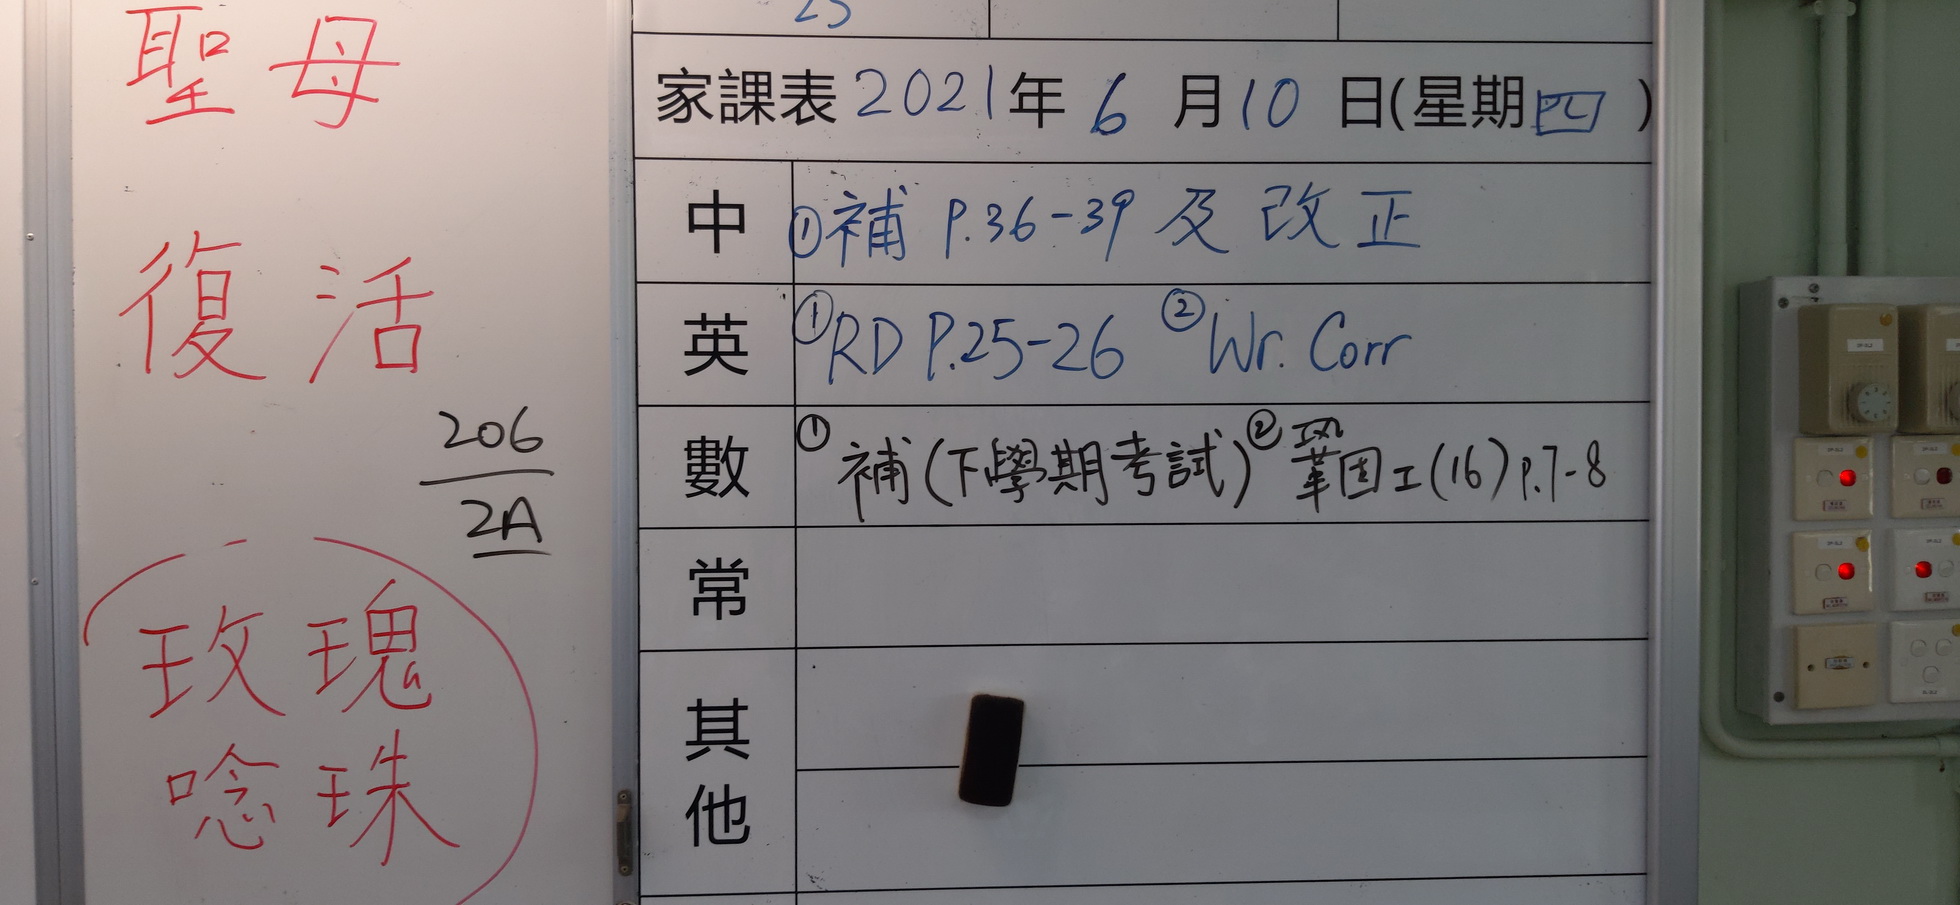 聖母
復活
206
2A
玫瑰
唸珠
25
家課表 2021年 6 月10 日(星期四 )
中 ①補 P.36-39 及 改正
英 ①RD P.25-26 ②Wr. Corr
數 ①補(下學期考試)②鞏固工(16) P.7-8
常
其他